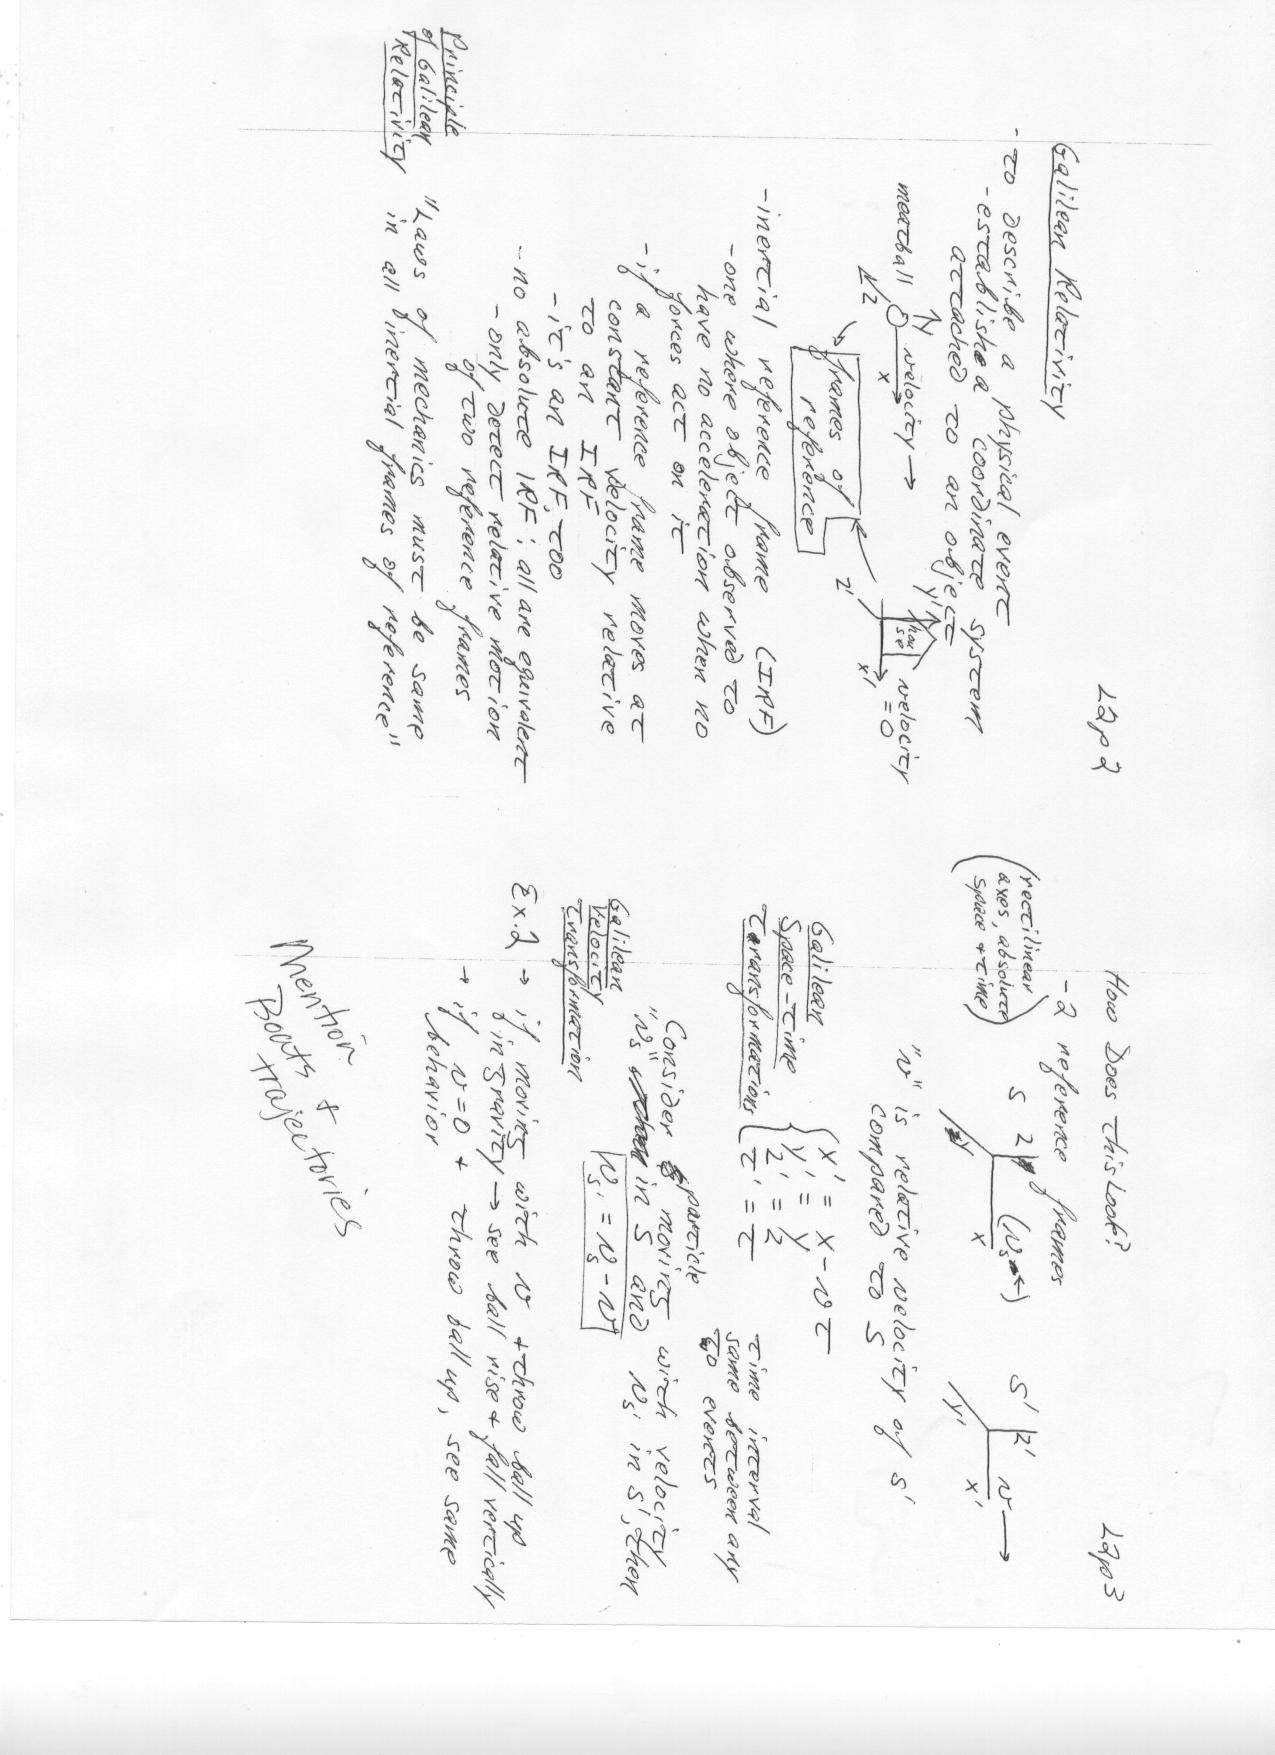 L2p2
Galilean Relativity
- to describe a physical event
- establish a coordinate system
attached to an object
y
meatball
velocity →
x
z
y'
house
velocity
= 0
x'
z'
frames of
reference
- inertial reference frame (IRF)
- one where object observed to
have no acceleration when no
forces act on it
- if a reference frame moves at
constant velocity relative
to an IRF
- it's an IRF, too
- no absolute IRF; all are equivalent
- only detect relative motion
of two reference frames
Principle
of Galilean
Relativity
"Laws of mechanics must be same
in all inertial frames of reference"
L2p3
How Does this Look?
- 2 reference frames
(rectilinear
axes, absolute
space + time)
S
z
(v_s →)
x
y
S'
z'
v →
x'
y'
"v" is relative velocity of S'
compared to S
Galilean
Space-time
Transformations
x' = x - vt
y' = y
z' = z
t' = t
time interval
same between any
two events
Consider particle moving with velocity
"v_s" in S and v_s' in S', then
Galilean
Velocity
Transformation
v_s' = v_s - v
Ex. 2 → if moving with v + throw ball up
in gravity → see ball rise + fall vertically
→ if v=0 + throw ball up, see same
behavior
Mention
Boats +
trajectories